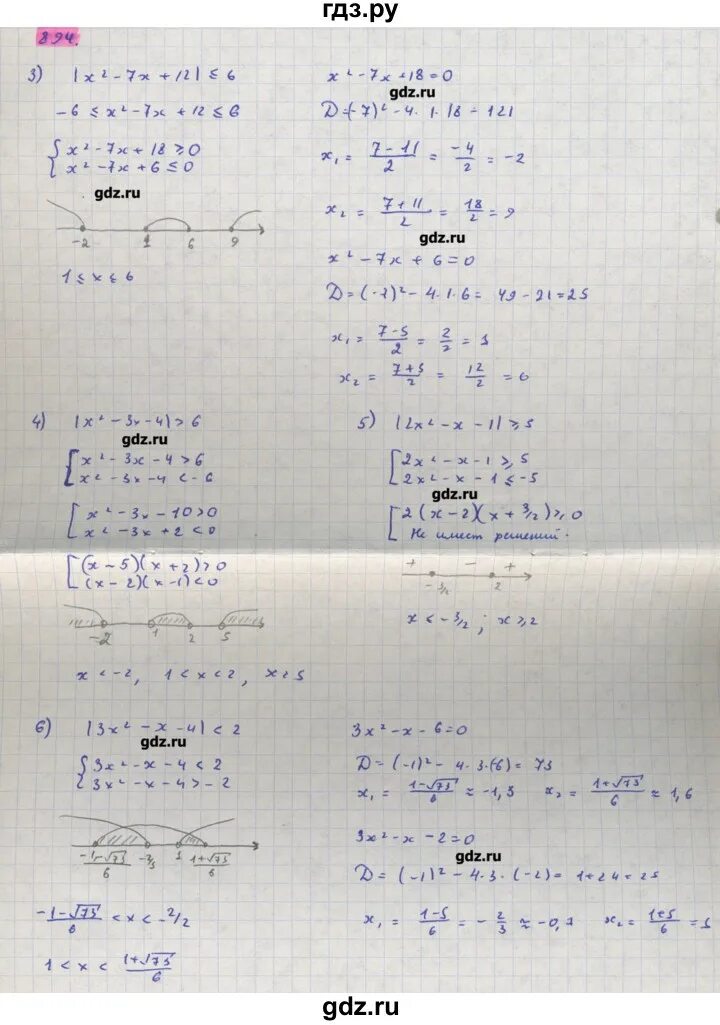 гдз.ру
894.
3) |x² - 7x + 12| ≤ 6
-6 ≤ x² - 7x + 12 ≤ 6
{ x² - 7x + 18 ≥ 0
x² - 7x + 6 ≤ 0
gdz.ru
-2 1 6 9
1 ≤ x ≤ 6
x² - 7x + 18 = 0
gdz.ru
D = (-7)² - 4 · 1 · 18 = 121
x₁ = (7 - 11)/2 = -4/2 = -2
x₂ = (7 + 11)/2 = 18/2 = 9
gdz.ru
x² - 7x + 6 = 0
D = (-7)² - 4 · 1 · 6 = 49 - 21 = 25
x₁ = (7 - 5)/2 = 2/2 = 1
x₂ = (7 + 5)/2 = 12/2 = 6
4) |x² - 3x - 4| > 6
gdz.ru
[ x² - 3x - 4 > 6
x² - 3x - 4 < -6
[ x² - 3x - 10 > 0
x² - 3x + 2 < 0
[ (x - 5)(x + 2) > 0
(x - 2)(x - 1) < 0
-2 1 2 5
x < -2, 1 < x < 2, x > 5
5) |2x² - x - 1| ≥ 5
[ 2x² - x - 1 ≥ 5
2x² - x - 1 ≤ -5
gdz.ru
[ 2(x - 2)(x + 3/2) ≥ 0
Не имеет решений.
+ - +
-3/2 2
x < -3/2 ; x ≥ 2
6) |3x² - x - 4| < 2
gdz.ru
{ 3x² - x - 4 < 2
3x² - x - 4 > -2
(-1-√73)/6 -2/3 1 (1+√73)/6
(-1-√73)/6 < x < -2/2
1 < x < (1+√73)/6
3x² - x - 6 = 0
D = (-1)² - 4 · 3 · (6) = 73
x₁ = (1-√73)/6 ≈ -1,3 x₂ = (1+√73)/6 ≈ 1,6
3x² - x - 2 = 0
gdz.ru
D = (-1)² - 4 · 3 · (-2) = 1 + 24 = 25
x₁ = (1-5)/6 = -2/3 ≈ -0,7 x₂ = (1+5)/6 = 1
gdz.ru